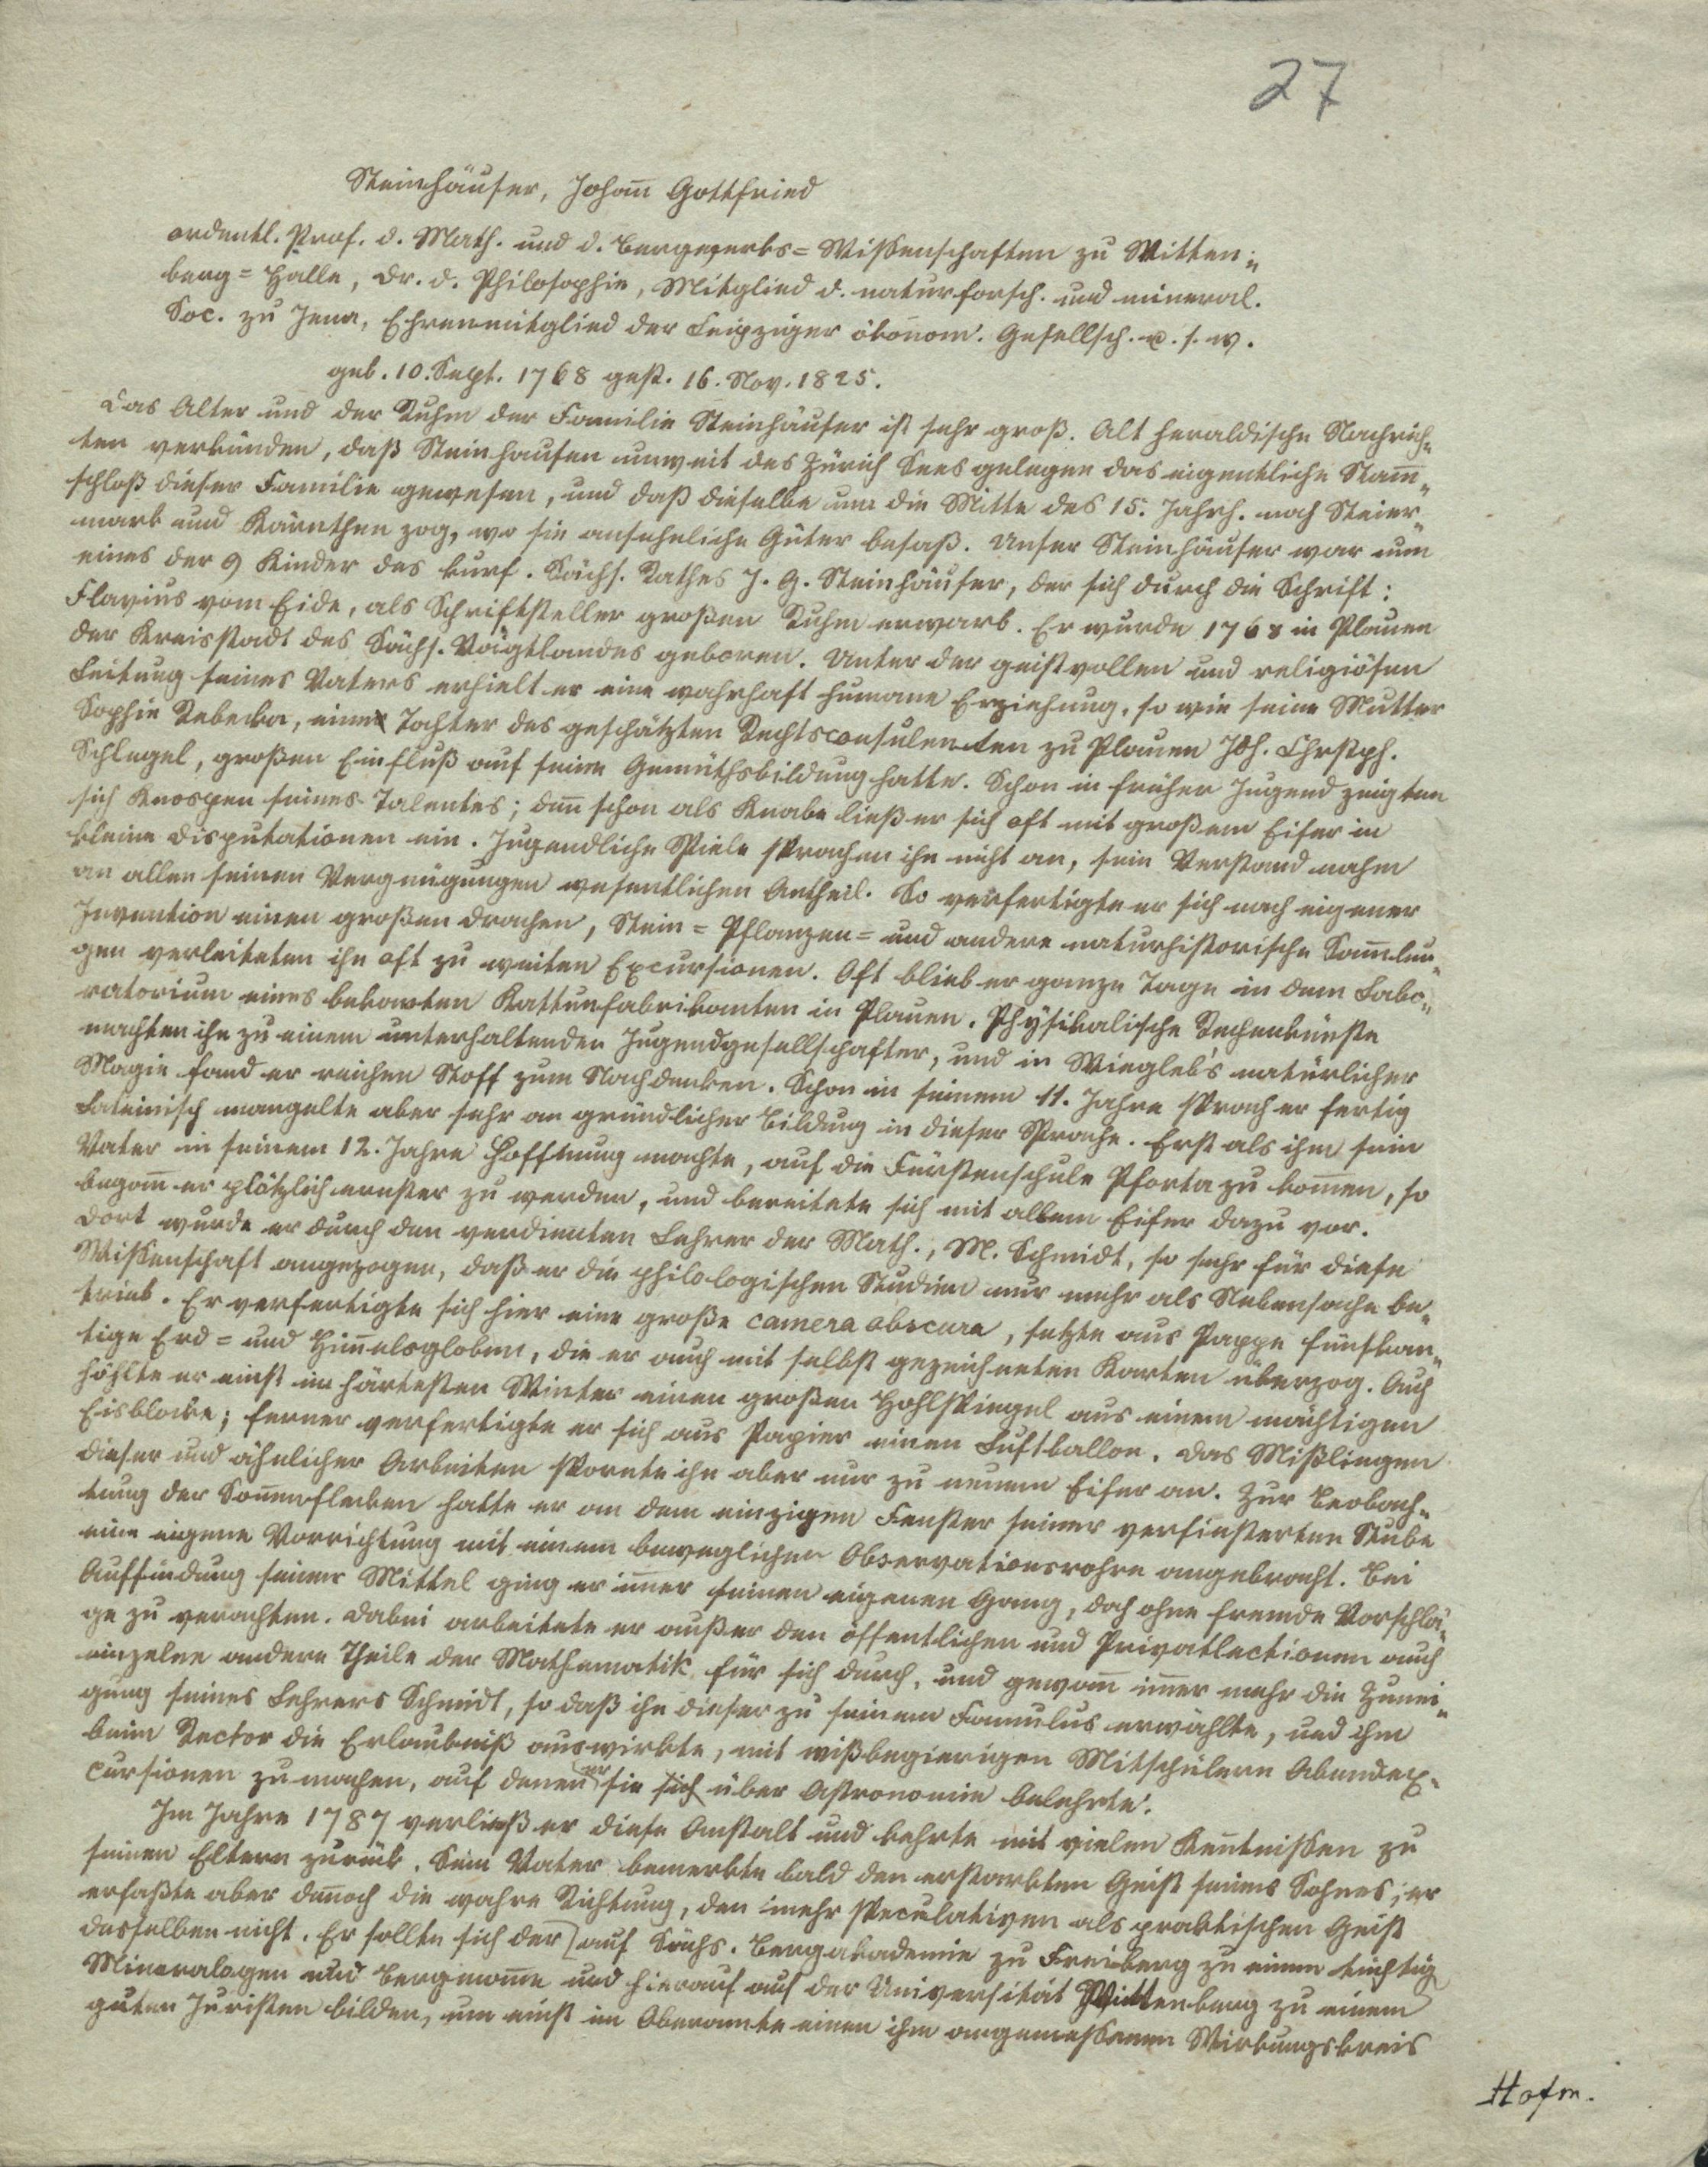 27
Steinhäuser, Johan̄ Gottfried
ordentl. Prof. d. Math. und d. Bergwerks=Wissenschaften zu Witten=
berg=Halle, Dr. d. Philosophie, Mitglied d. naturforsch. und mineral.
Soc. zu Jena, Ehrenmitglied der Leipziger ökonom. Gesellsch. u. s. w.
geb. 10. Sept. 1768 gest. 16. Nov. 1825.
Das Alter und der Ruhm der Familie Steinhäuser ist sehr groß. Alt heraldische Nachrich=
ten verkünden, daß Steinhausen unweit des Zürich Sees gelegen das eigentliche Stam̄=
schloß dieser Familie gewesen, und daß dieselbe um die Mitte des 15. Jahrh. nach Steier=
mark und Kärnthen zog, wo sie ansehnliche Güter besaß. Unser Steinhäuser war nun
eines der 9 Kinder des kurf. Sächs. Rathes J. G. Steinhäuser, der sich durch die Schrift:
Flavius vom Eide, als Schriftsteller großen Ruhm erwarb. Er wurde 1768 in Plauen
der Kreisstadt des Sächs. Voigtlandes geboren. Unter der geistvollen und religiösen
Leitung seines Vaters erhielt er eine wahrhaft humane Erziehung, so wie seine Mutter
Sophie Rebecka, eine Tochter des geschätzten Rechtsconsulenten zu Plauen Joh. Chrstph.
Schlegel, großen Einfluß auf seine Gemüthsbildung hatte. Schon in früher Jugend zeigten
sich Knospen seines Talentes; den̄ schon als Knabe ließ er sich oft mit großem Eifer in
kleine Disputationen ein. Jugendliche Spiele sprachen ihn nicht an, sein Verstand nahm
an allen seinen Vergnügungen wesentlichen Antheil. So verfertigte er sich nach eigener
Invention einen großen Drachen, Stein= Pflanzen= und andere naturhistorische Sam̄lun=
gen verleiteten ihn oft zu weiten Excursionen. Oft blieb er ganze Tage in dem Labo=
ratorium eines bekan̄ten Kattunfabrikanten in Plauen. Physikalische Rechenkünste
machten ihn zu einem unterhaltenden Jugendgesellschafter, und in Wiegleb's natürlicher
Magie fand er reichen Stoff zum Nachdenken. Schon in seinem 11. Jahre sprach er fertig
Lateinisch mangelte aber sehr an gründlicher Bildung in dieser Sprache. Erst als ihm sein
Vater in seinem 12. Jahre Hoffnung machte, auf die Fürstenschule Pforta zu kom̄en, so
began̄ er plötzlich ernster zu werden, und bereitete sich mit allem Eifer dazu vor.
Dort wurde er durch den verdienten Lehrer der Math., M. Schmidt, so sehr für diese
Wissenschaft angezogen, daß er die philologischen Studien nur mehr als Nebensache be=
trieb. Er verfertigte sich hier eine große camera obscura, setzte aus Pappe fünfkan=
tige Erd= und Him̄elsgloben, die er auch mit selbst gezeichneten Karten überzog. Auch
höhlte er einst im härtesten Winter einen großen Hohlspiegel aus einem mächtigen
Eisblocke; ferner verfertigte er sich aus Papier einen Luftballon. Das Mißlingen
dieser und ähnlicher Arbeiten spornte ihn aber nur zu neuem Eifer an. Zur Beobach=
tung der Son̄enflecken hatte er an dem einzigen Fenster seiner verfinsterten Stube
eine eigene Vorrichtung mit einem beweglichen Observationsrohre angebracht. Bei
Auffindung seiner Mittel ging er im̄er seinen eigenen Gang, doch ohne fremde Vorschlä=
ge zu verachten. Dabei arbeitete er außer den öffentlichen und Privatlectionen auch
einzelne andere Theile der Mathematik für sich durch, und gewan̄ im̄er mehr die Zunei=
gung seines Lehrers Schmidt, so daß ihn dieser zu seinem Famulus erwählte, und ihm
beim Rector die Erlaubniß auswirkte, mit wißbegierigen Mitschülern Abendex=
cursionen zu machen, auf denen er sie sich über Astronomie belehrte.
Im Jahre 1787 verließ er diese Anstalt und kehrte mit vielen Ken̄tnissen zu
seinen Eltern zurück. Sein Vater bemerkte bald den erstarkten Geist seines Sohnes; er
erfaßte aber den̄och die wahre Richtung, den mehr speculativen als praktischen Geist
desselben nicht. Er sollte sich der auf Sächs. Bergakademie zu Freiberg zu einem tüchtig
Mineralogen und Bergman̄e und hierauf auf der Universität Wittenberg zu einem
guten Juristen bilden, um einst im Oberamte einen ihm angemessenen Wirkungskreis
Hofm.